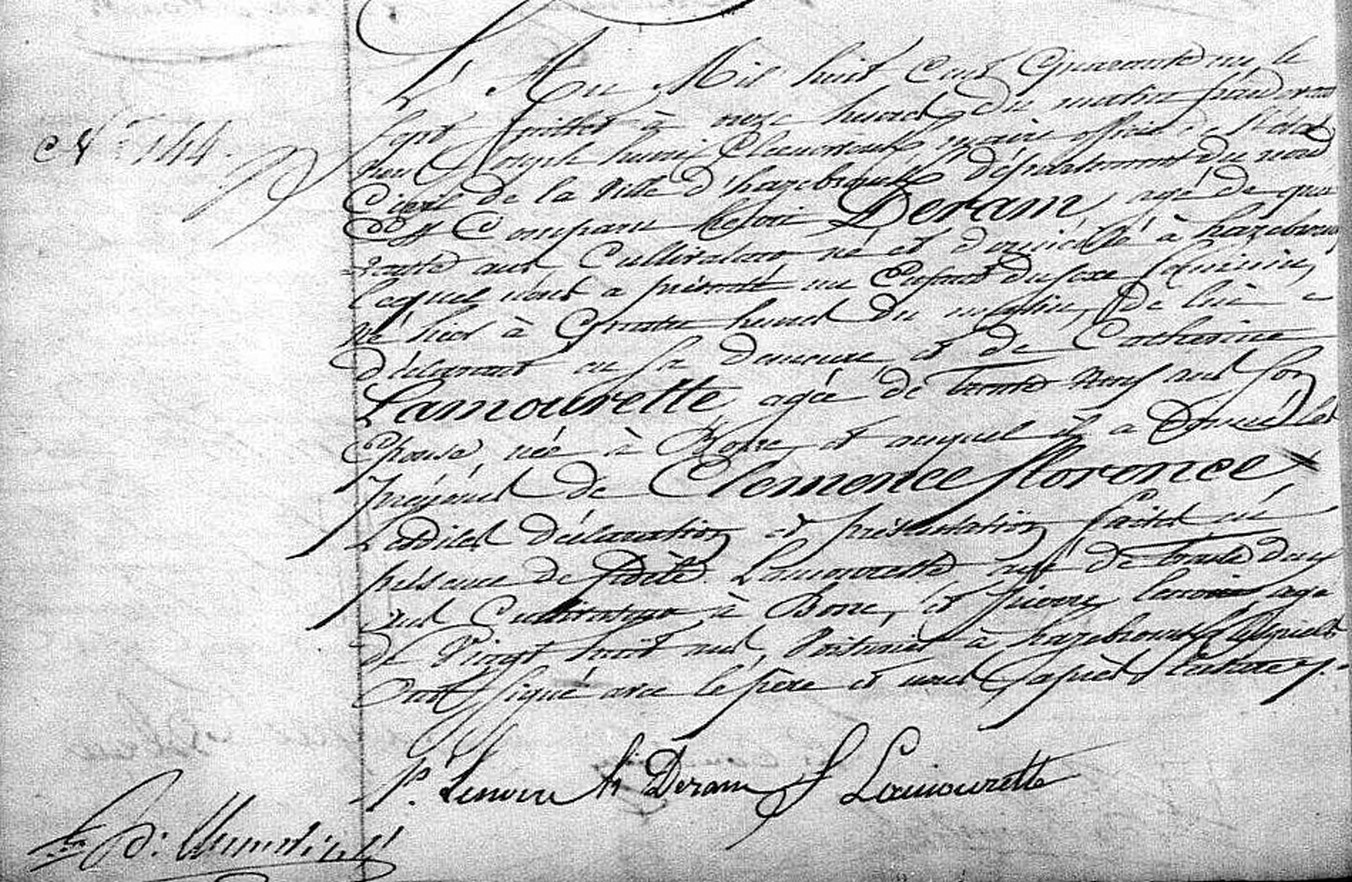 N° 144.
L'An Mil huit Cent Quarante un, le
Sept Juillet à onze heures du matin pardevant
nous Joseph henri maire officier de l'état
Civil de la Ville d'hazebrouck département du nord
Est Comparu henri Deram, agé de qua
rante ans, Cultivateur né et domicilié à hazebrouck
lequel nous a présenté un Enfant du sexe féminin,
né hier à quatre heures du matin, De lui
déclarant en sa demeure et de Catherine
Lamourette agée de trente neuf ans son
Epouse née à Borre, et auquel il a Donné les
prénoms de Clemence florence
Lesdites déclaration et présentation faites en
présence de fidèle Lamourette agé de trente deux
ans Cultivateur à Borre, et pierre lenoir agé
de Vingt huit ans, Voiturier à hazebrouck lesquels
Ont signé avec le père et nous après lecture
P. Lenoir h Deram f Lamourette